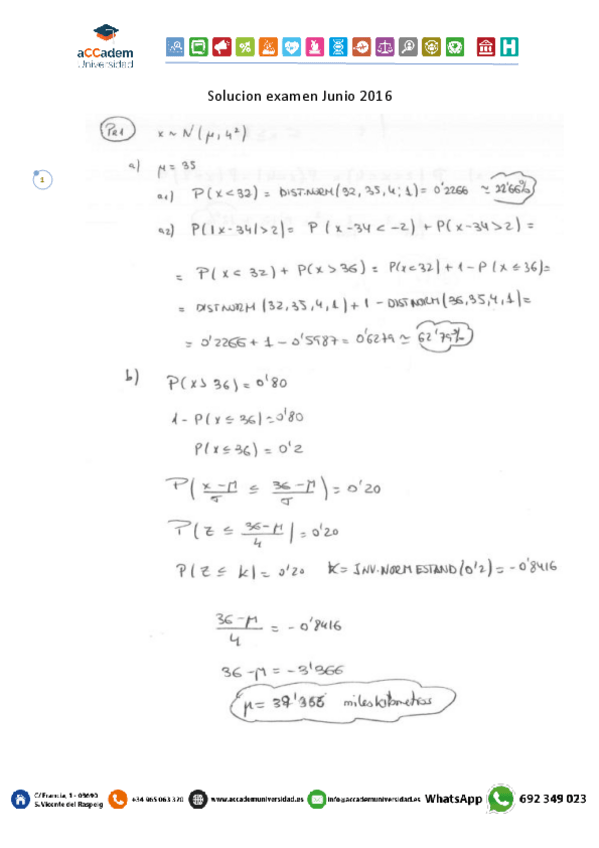 aCCadem
Universidad
Solucion examen Junio 2016
1
PR1 x ~ N(μ, 4²)
a) μ = 35
a1) P(x<32) = DIST.NORM(32, 35, 4; 1) = 0'2266 ≃ 22'66%
a2) P(|x-34|>2) = P(x-34<-2) + P(x-34>2) =
= P(x<32) + P(x>36) = P(x<32) + 1 - P(x≤36) =
= DISTNORM(32,35,4,1) + 1 - DISTNORM(36,35,4,1) =
= 0'2266 + 1 - 0'5987 = 0'6279 ≃ 62'79%
b) P(x>36) = 0'80
1 - P(x≤36) = 0'80
P(x≤36) = 0'2
P(x-μ/σ ≤ 36-μ/σ) = 0'20
P(z ≤ 36-μ/4) = 0'20
P(z ≤ k) = 0'20 k = INV.NORM ESTAND(0'2) = -0'8416
36-μ/4 = -0'8416
36-μ = -3'366
μ = 39'366 miles kilometros
C/ Francia, 1 - 03690
S. Vicente del Raspeig
+34 965 063 320
www.accademuniversidad.es
info@accademuniversidad.es
WhatsApp
692 349 023